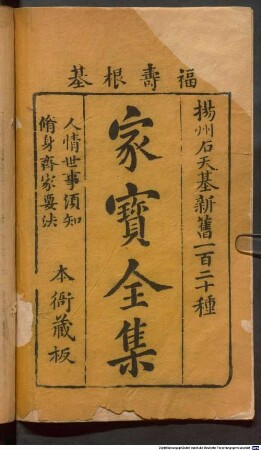 福壽根基
揚州石天基新舊一百二十種
家寶全集
人情世事須知
脩身齊家要法
本衙藏板